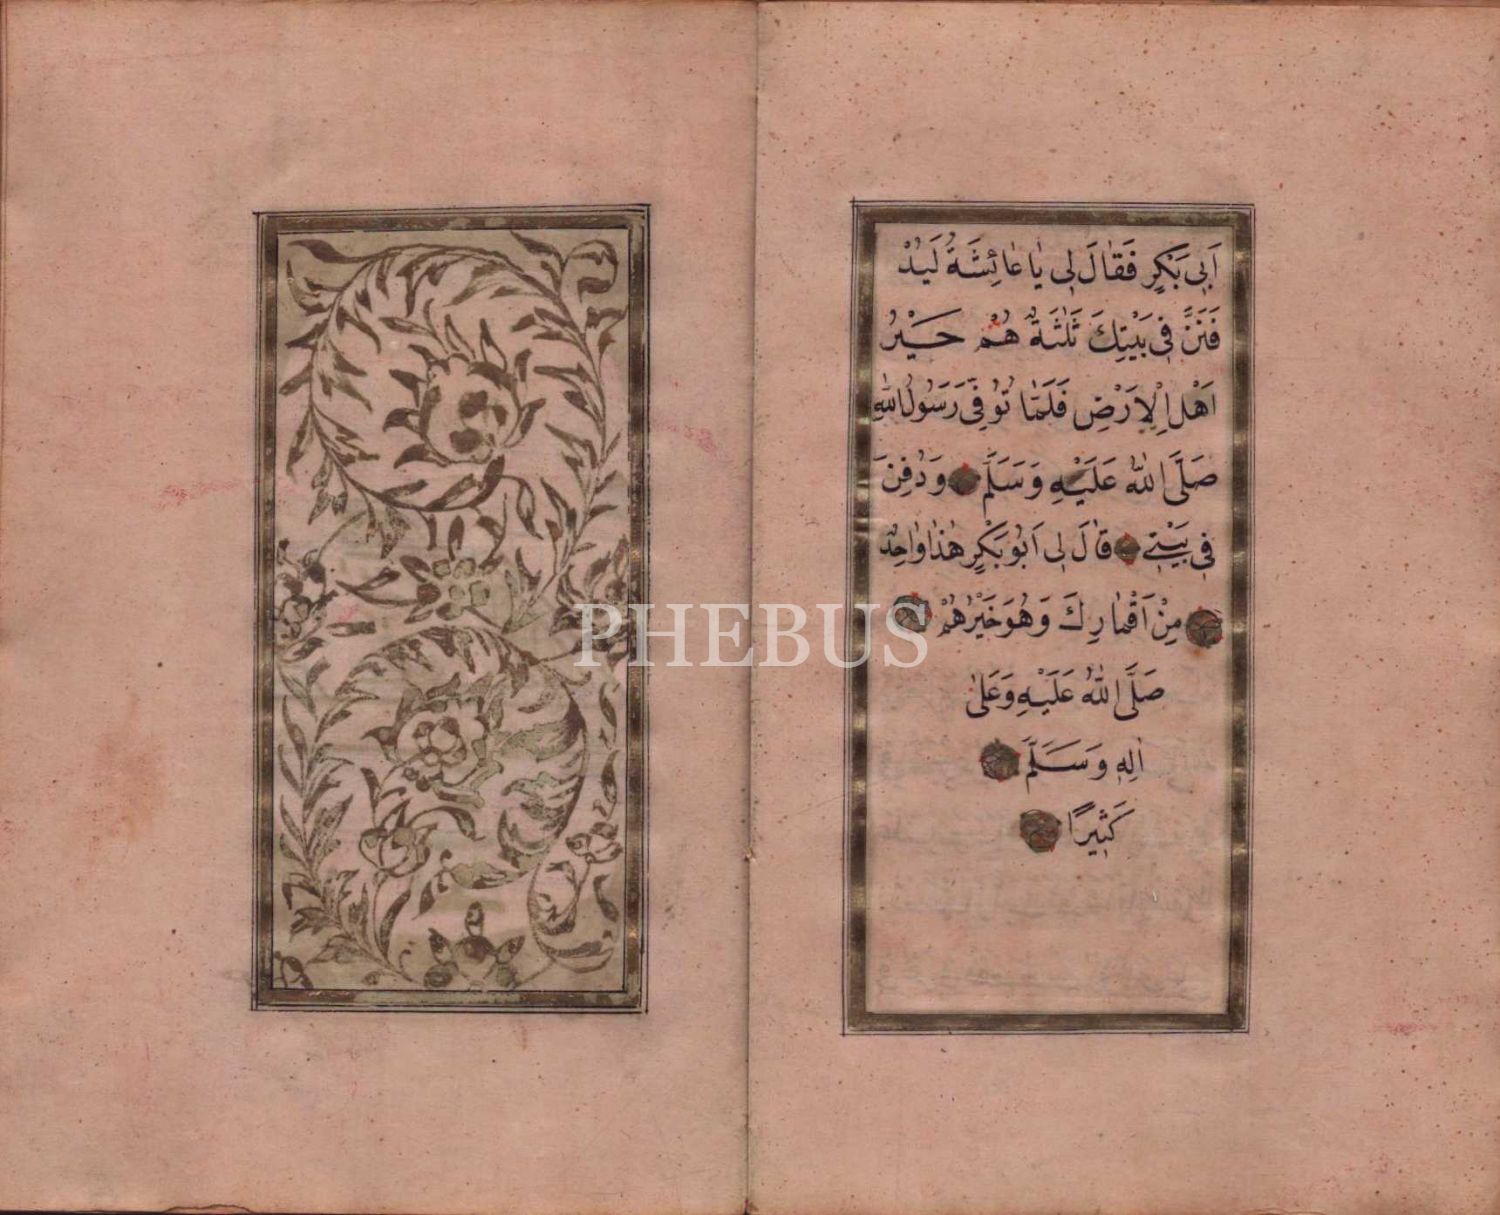 اَبِى بَكْرٍ فَقَالَ لِى يَا عَائِشَةُ لَيُدْ
فَنَنَّ فِى بَيْتِكَ ثَلٰثَةٌ هُمْ خَيْرُ
اَهْلِ الْاَرْضِ فَلَمَّا تُوُفِّىَ رَسُولُ اللهِ
صَلَّى اللهُ عَلَيْهِ وَسَلَّمَ وَدُفِنَ
فِى بَيْتِى قَالَ لِى اَبُو بَكْرٍ هٰذَا وَاحِدٌ
مِنْ اَقْمَارِكَ وَهُوَ خَيْرُهُمْ
صَلَّى اللهُ عَلَيْهِ وَعَلٰى
اٰلِهِ وَسَلَّمَ
كَثِيرًا
PHEBUS